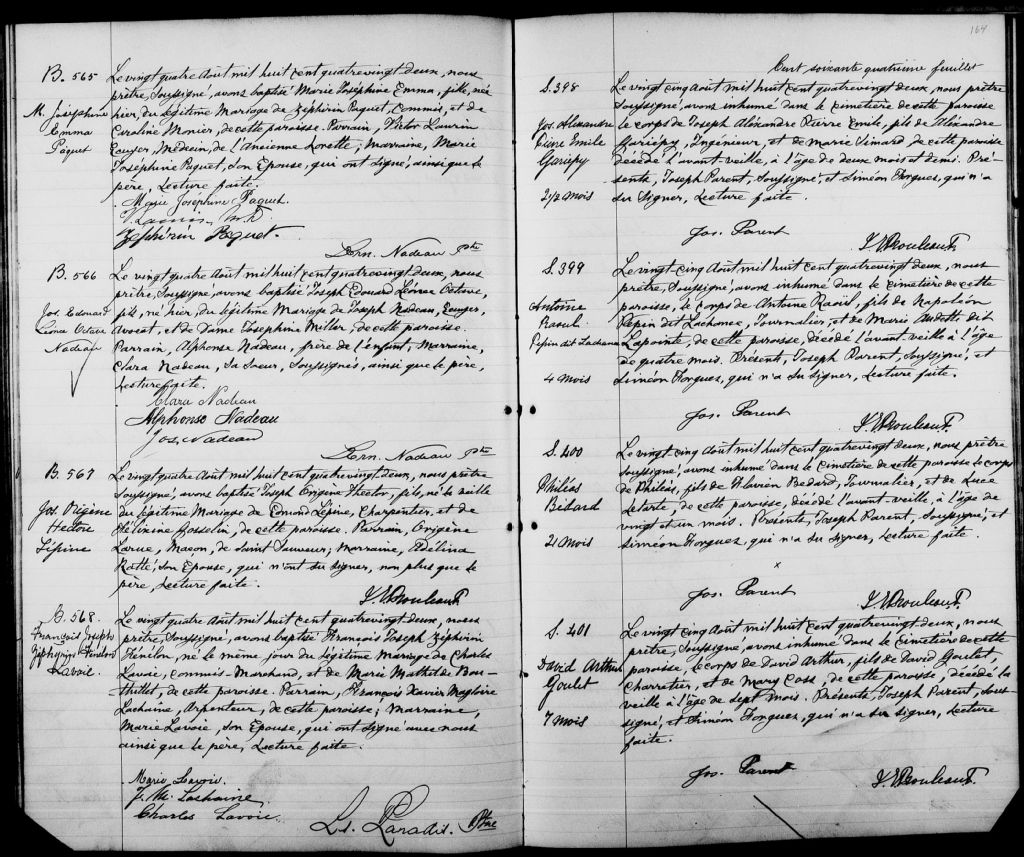 B. 565
M. Joséphine
Emma
Paquet
Le vingt quatre Août mil huit cent quatrevingt deux, nous
prêtre, soussigné, avons baptisé Marie Joséphine Emma, fille, née
hier, du légitime Mariage de Zéphirin Paquet Commis, et de
Caroline Monier, de cette paroisse. Parrain, Victor Laurin
Ecuyer, Médecin, de l'Ancienne Lorette; marraine, Marie
Joséphine Paquet, son Epouse, qui ont signé, ainsi que le
père, Lecture faite.
Marie Josephine Paquet.
V. Laurin, M.D.
Zéphirin Paquet.
Ern. Nadeau Ptre
B. 566
Jos. Edouard
Léonce Octave
Nadeau
Le vingt quatre Août mil huit cent quatrevingt deux, nous
prêtre, soussigné, avons baptisé Joseph Edouard Léonce Octave,
fils, né hier, du légitime Mariage de Joseph Nadeau, Ecuyer,
Avocat, et de Dame Joséphine Miller, de cette paroisse.
Parrain, Alphonse Nadeau, frère de l'enfant, Marraine,
Clara Nadeau, sa soeur, soussignés, ainsi que le père,
Lecture faite.
Clara Nadeau
Alphonse Nadeau
Jos. Nadeau
Ern. Nadeau Ptre
B. 567
Jos. Origène
Hector
Lépine
Le vingt quatre Août mil huit cent quatrevingt deux, nous prêtre
soussigné, avons baptisé Joseph Origène Hector, fils, né la veille
du légitime Mariage de Edmond Lépine, Charpentier, et de
Gosselin, de cette paroisse. Parrain, Origène
Larue, Maçon, de Saint Sauveur; Marraine, Adélina
Ratté, son Epouse, qui n'ont su signer, non plus que le
père, Lecture faite.
J. E. Rouleau P.
B. 568.
François Joseph
Zéphirin Fénélon
Lavoie.
Le vingt quatre Août mil huit cent quatrevingt deux, nous
prêtre, soussigné, avons baptisé François Joseph Zéphirin
Fénélon, né le même jour du légitime Mariage de Charles
Lavoie, commis-Marchand, et de Marie Mathilde Bou-
thillet, de cette paroisse. Parrain, François Xavier Magloire
Lachaine, Arpenteur, de cette paroisse; marraine,
Marie Lavoie, son Epouse, qui ont signé avec nous
ainsi que le père, Lecture faite.
Marie Lavoie.
Lachaine
Charles Lavoie.
Ls. Paradis. Ptre
164
Cent soixante quatrième feuillet
S. 398
Jos. Alexandre
Pierre Emile
Gariépy
2 1/2 Mois
Le vingt cinq Août mil huit cent quatrevingt deux, nous prêtre
soussigné, avons inhumé dans le cimetière de cette paroisse
le corps de Joseph Aléxandre Pierre Emile, fils de Aléxandre
Gariépy, Ingénieur, et de Marie Simard, de cette paroisse
décédé l'avant veille, à l'âge de deux mois et demi. Pré-
sents, Joseph Parent, soussigné, et Siméon Forgues, qui n'a
su signer, Lecture faite.
Jos. Parent
J. E. Rouleau P.
S. 399
Antoine
Raoul.
Pepin dit Lachance
4 Mois
Le vingt cinq Août mil huit cent quatrevingt deux, nous
prêtre, soussigné, avons inhumé dans le cimetière de cette
paroisse, le corps de Antoine Raoül, fils de Napoléon
Pepin dit Lachance, Journalier, et de Marie Audette dit
Lapointe, de cette paroisse, décédé l'avant veille à l'âge
de quatre mois. Présents, Joseph Parent, soussigné, et
Siméon Forgues, qui n'a su signer, Lecture faite.
Jos. Parent
J. E. Rouleau P.
S. 400
Philéas
Bédard
21 Mois
Le vingt cinq Août mil huit cent quatrevingt deux, nous prêtre
soussigné, avons inhumé dans le cimetière de cette paroisse le corps
de Philéas, fils de Flavien Bedard, Journalier, et de Luce
Letarte, de cette paroisse, décédé l'avant-veille, à l'âge de
vingt et un mois. Présents, Joseph Parent, soussigné, et
Siméon Forgues, qui n'a su signer, Lecture faite.
x
Jos. Parent
J. E. Rouleau P.
S. 401
David Arthur
Goulet
7 Mois
Le vingt cinq Août mil huit cent quatrevingt deux, nous
prêtre, soussigné, avons inhumé dans le cimetière de cette
paroisse, le corps de David Arthur, fils de David Goulet,
Charretier, et de Mary Coss, de cette paroisse, décédé la
veille à l'âge de sept mois. Présents, Joseph Parent, sous-
signé, et Siméon Forgues, qui n'a su signer, Lecture
faite.
Jos. Parent
J. E. Rouleau P.